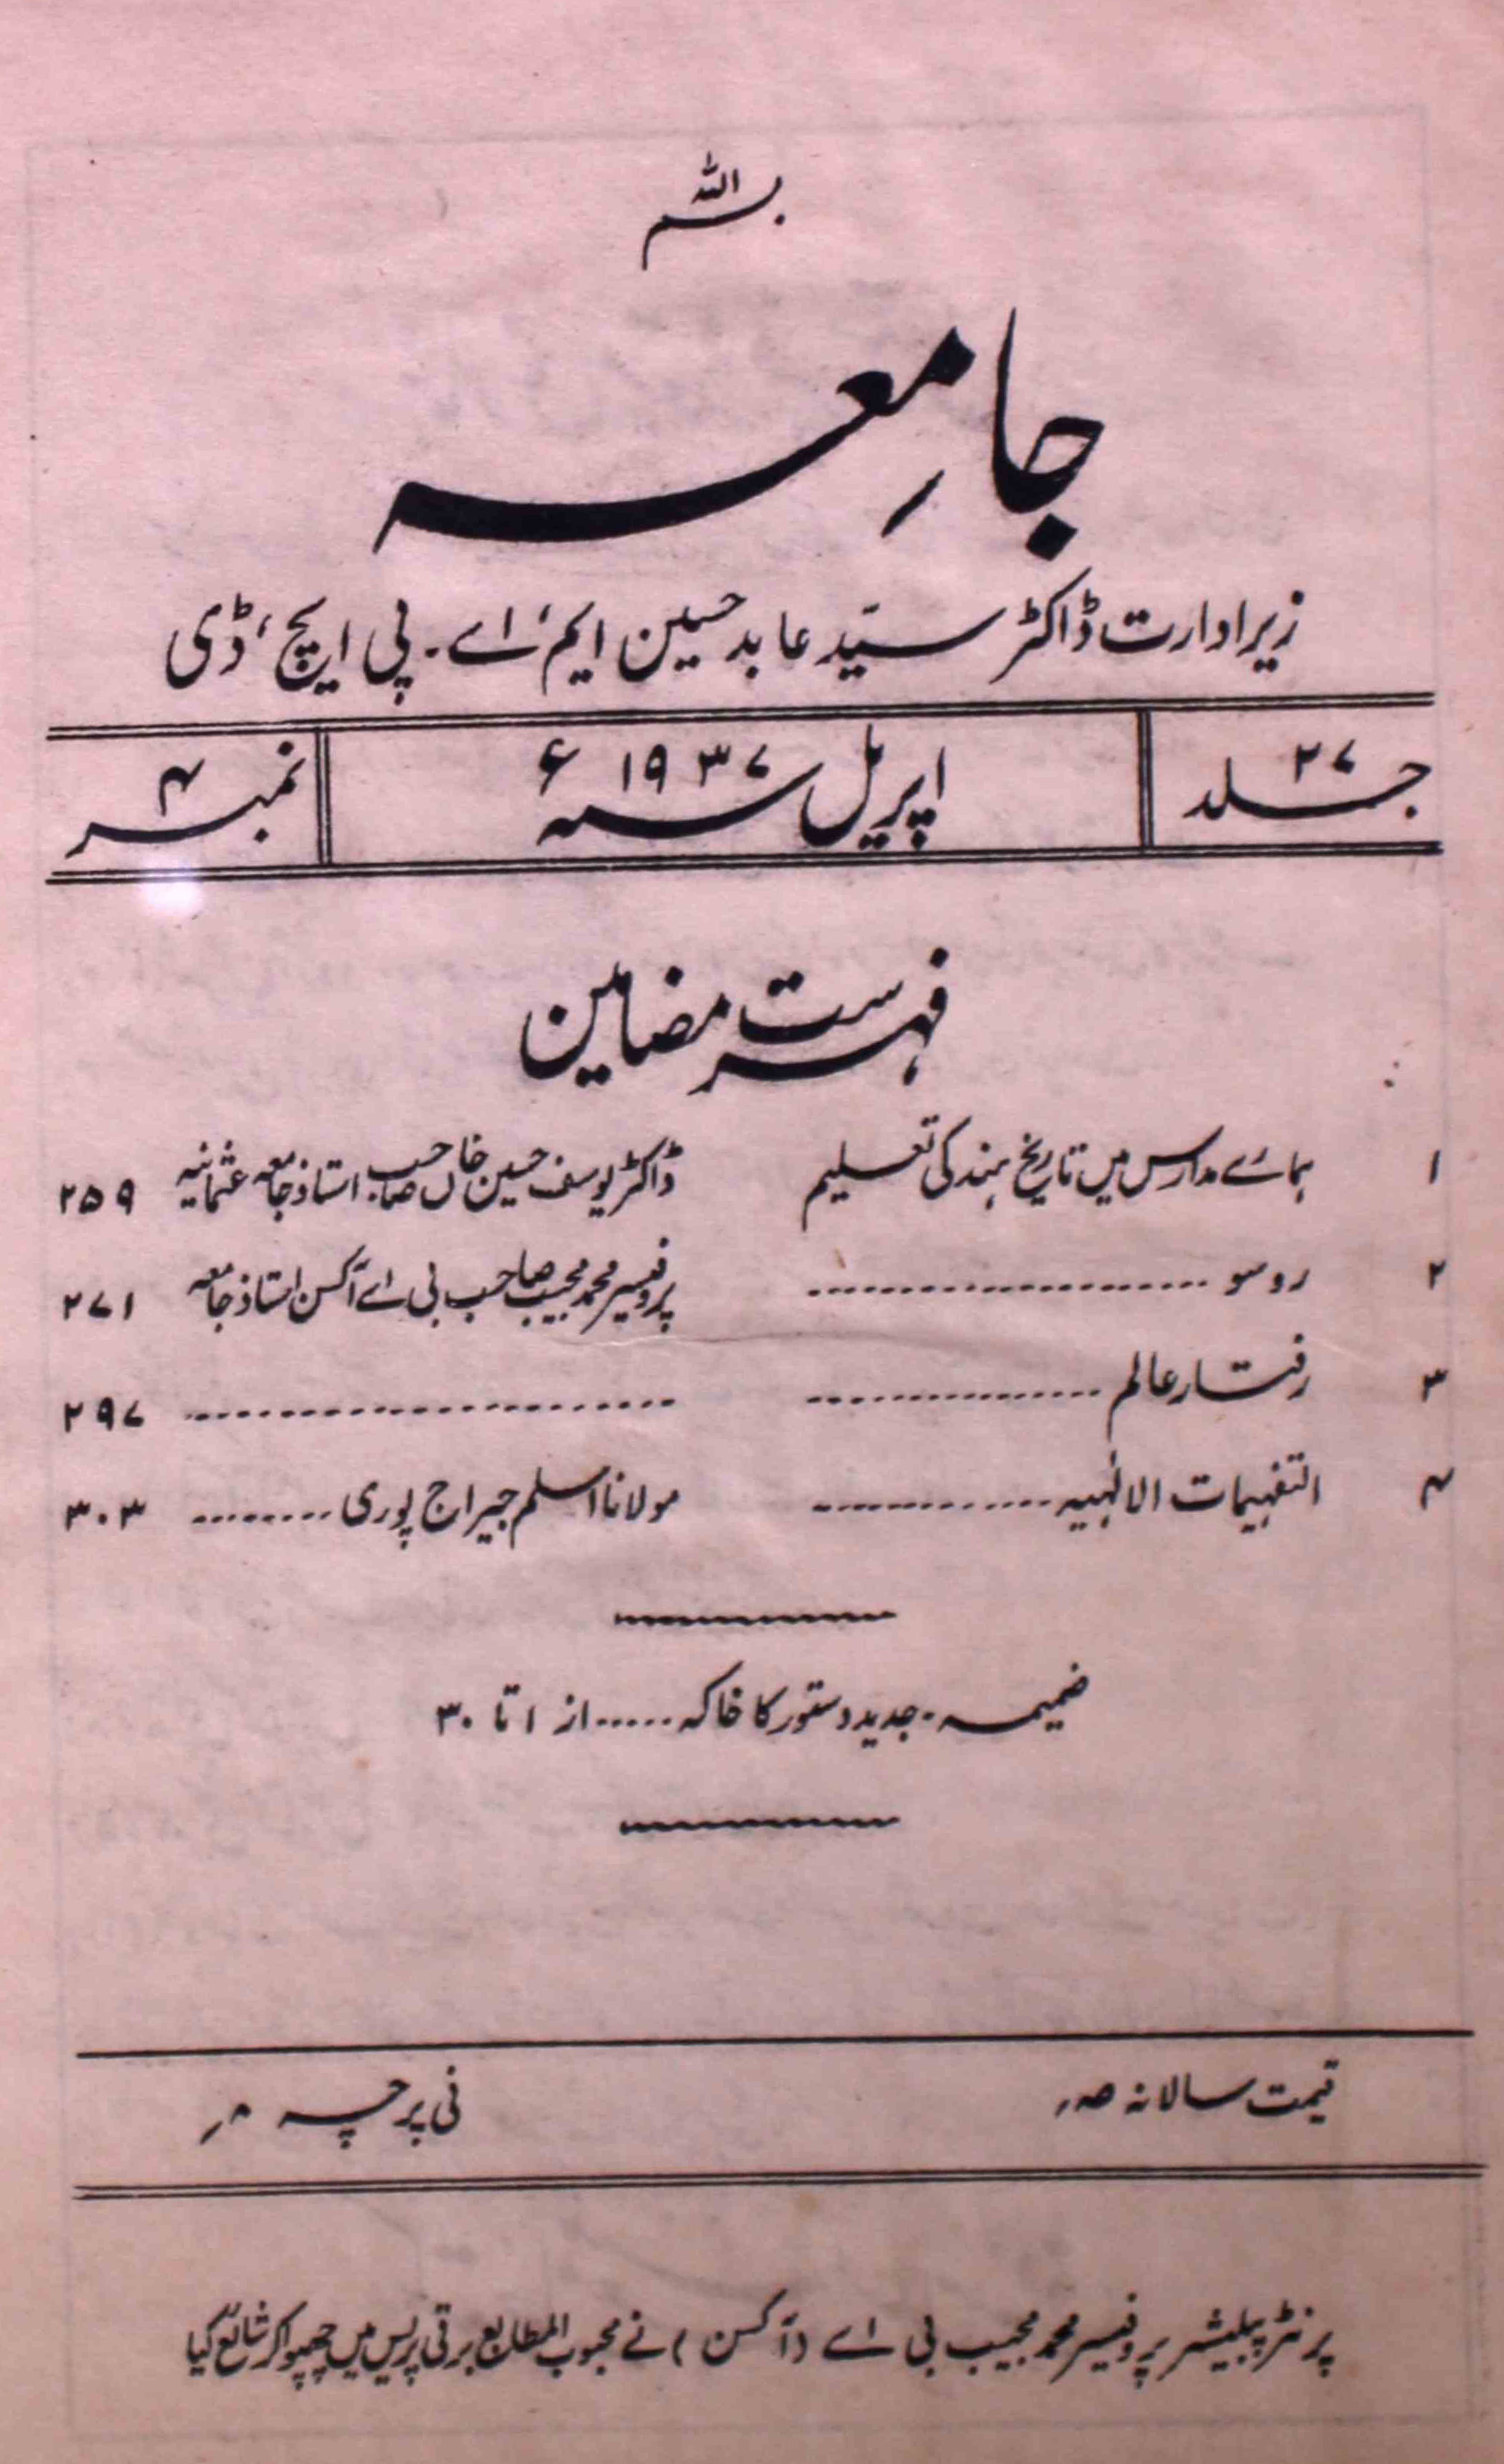 بسم اللہ
جامعہ
زیر ادارت ڈاکٹر سیّد عابد حسین ایم، اے۔ پی ایچ، ڈی
جلد ۲۷ اپریل سنہ ۱۹۳۷ء نمبر ۴
فہرست مضامین
۱ ہمارے مدارس میں تاریخ ہند کی تعلیم ڈاکٹر یوسف حسین خاں صاحب استاذ جامعہ عثمانیہ ۲۵۹
۲ روسو ........ پروفیسر محمد مجیب صاحب بی اے آکسن استاذ جامعہ ۲۷۱
۳ رفتار عالم ........ ........ ۲۹۷
۴ التفہیمات الالٰہیہ ........ مولانا اسلم جیراج پوری ........ ۳۰۳
ضمیمہ۔ جدید دستور کا خاکہ ...... از ۱ تا ۳۰
قیمت سالانہ صہ فی پرچہ ۸ر
پرنٹر پبلیشر پروفیسر محمد مجیب بی اے (آکسن) نے محبوب المطابع برقی پریس میں چھپوا کر شائع کیا